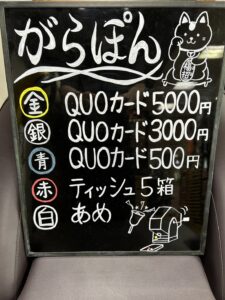 がらぽん
金 QUOカード5000円
銀 QUOカード3000円
青 QUOカード500円
赤 ティッシュ5箱
白 あめ